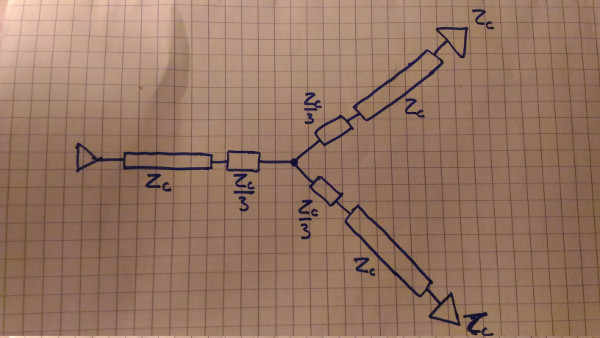 Zc
Zc
3
Zc
Zc
3
Zc
Zc
3
Zc
Zc